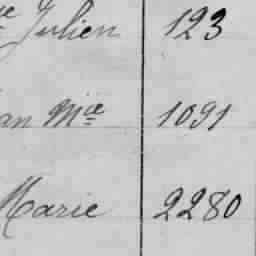 Julien 123
an Mie 1091
Marie 2280